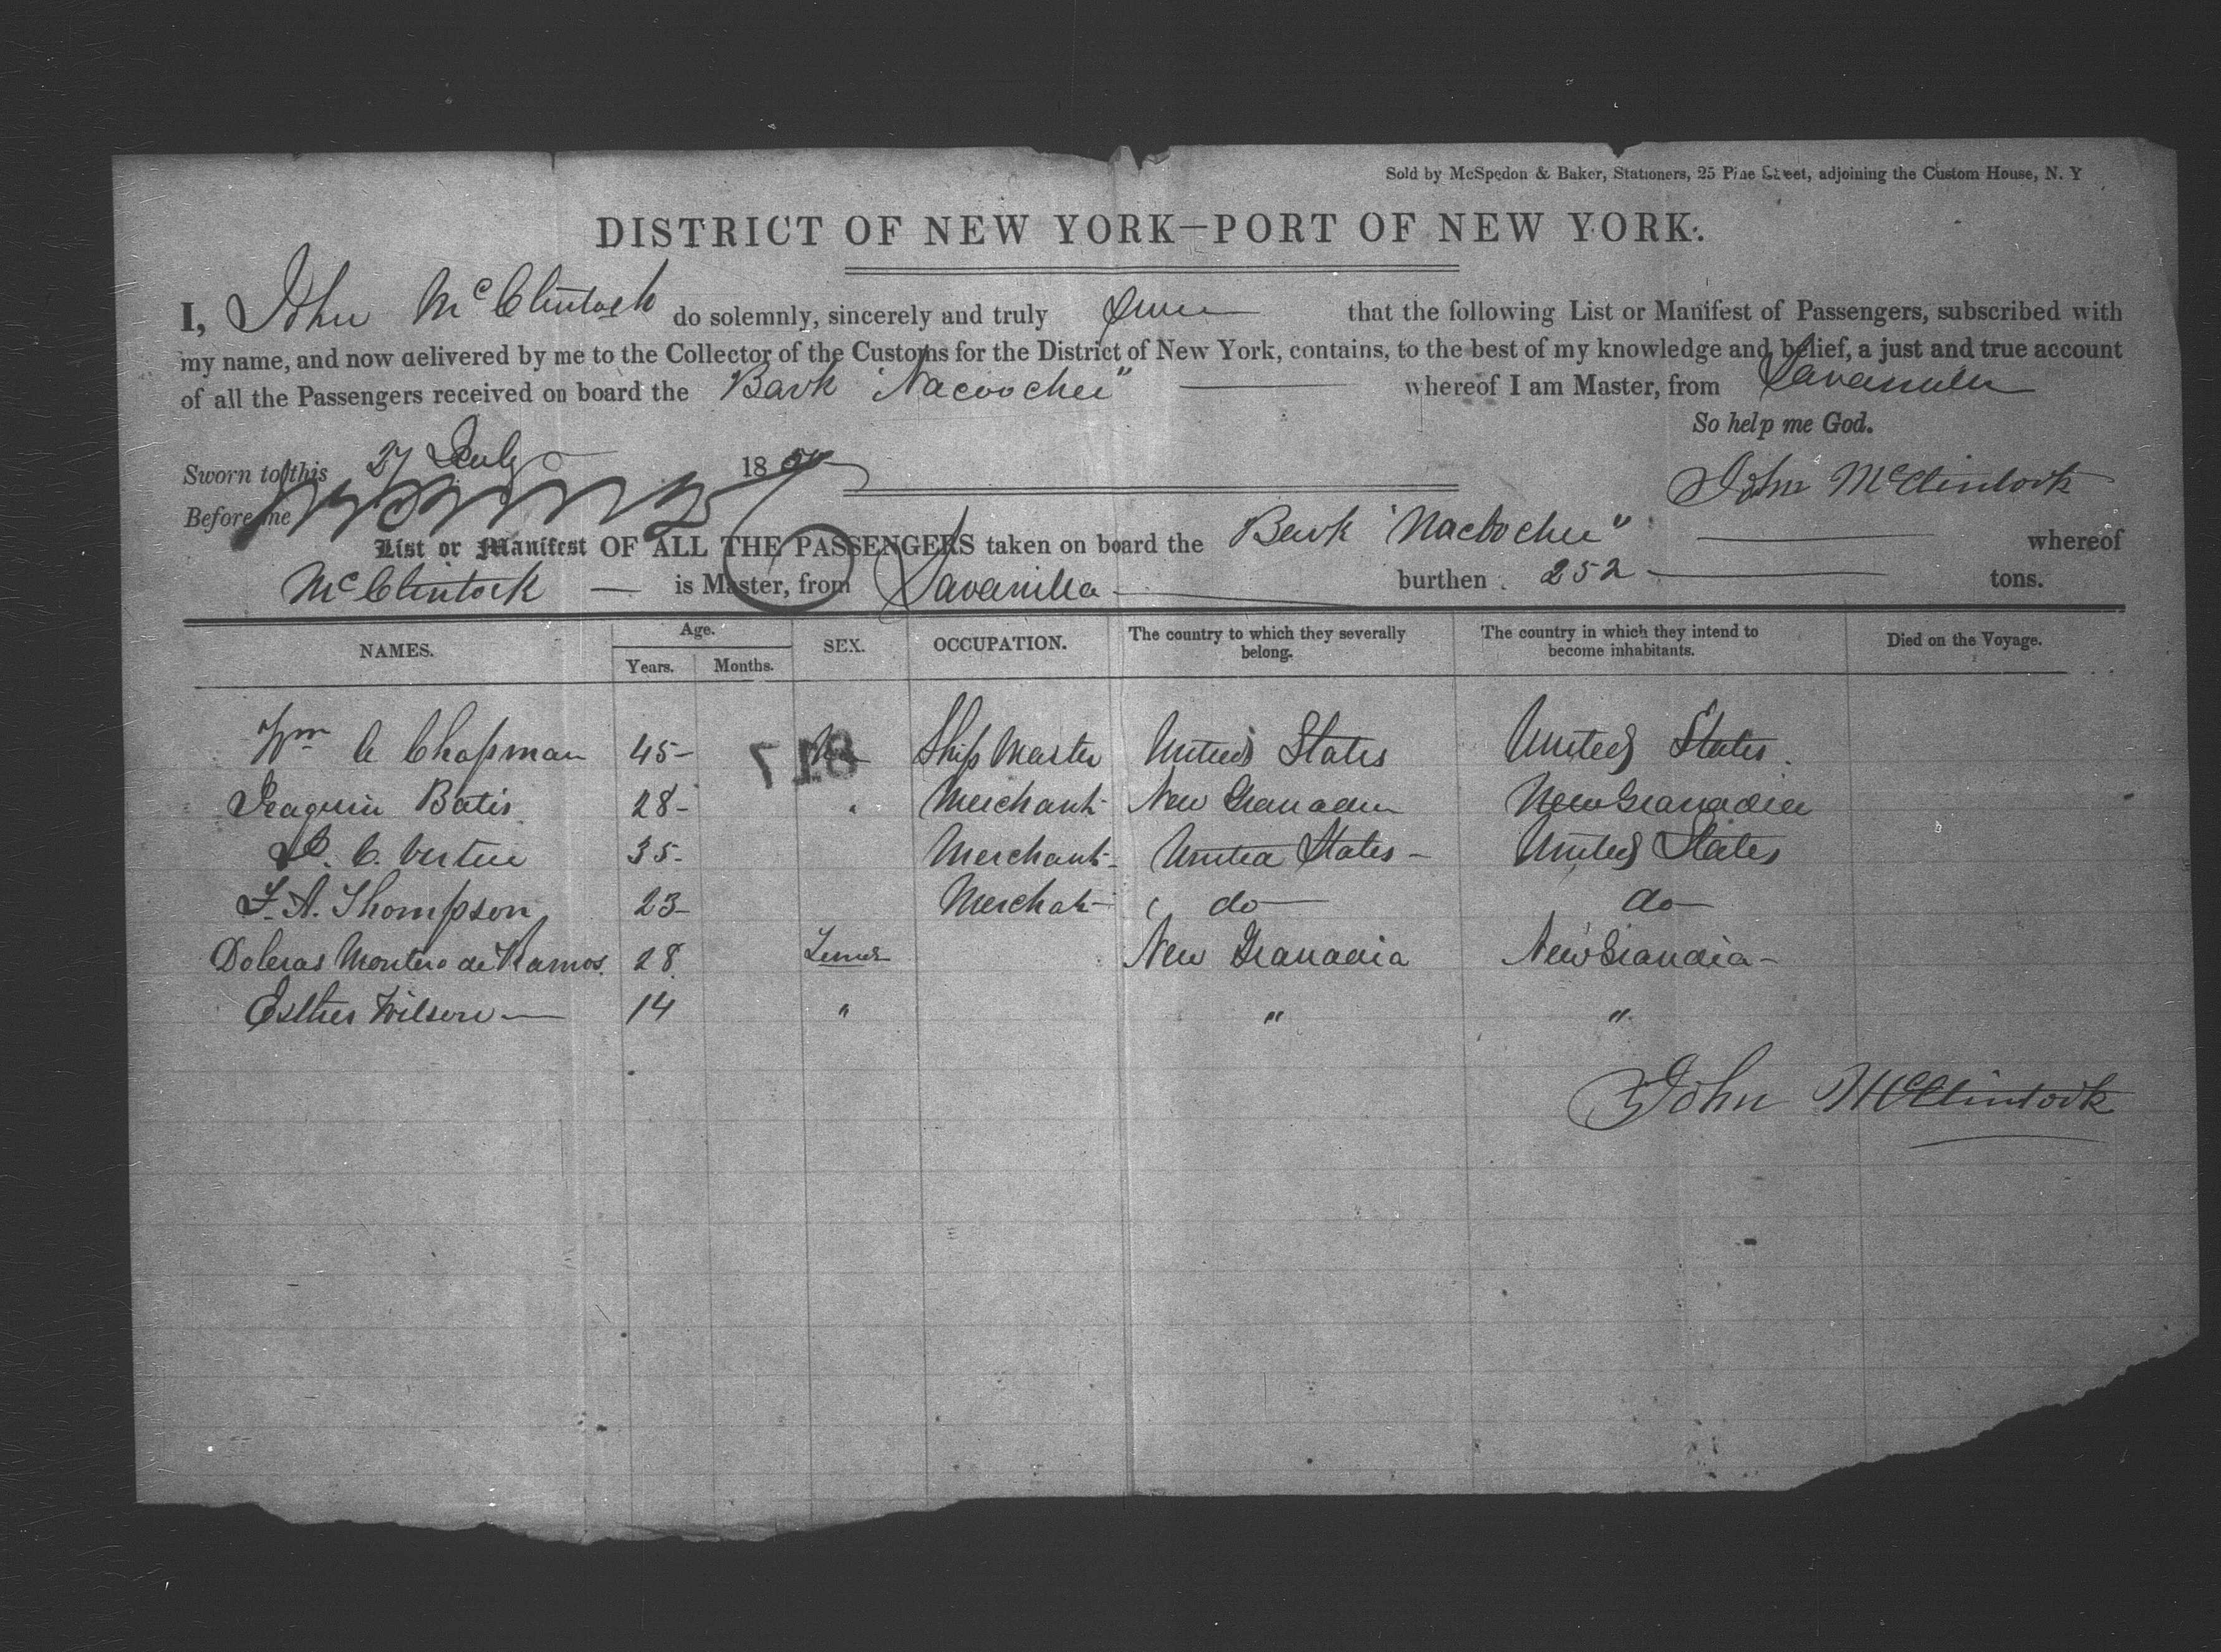 Sold by McSpedon & Baker, Stationers, 25 Pine Street, adjoining the Custom House, N. Y
DISTRICT OF NEW YORK—PORT OF NEW YORK.
I, John McClintock do solemnly, sincerely and truly that the following List or Manifest of Passengers, subscribed with
my name, and now delivered by me to the Collector of the Customs for the District of New York, contains, to the best of my knowledge and belief, a just and true account
of all the Passengers received on board the Bark "Nacoochee" whereof I am Master, from Savanilla
So help me God.
Sworn to this 27 July 18
John McClintock
Before me
List or Manifest OF ALL THE PASSENGERS taken on board the Bark "Nacoochee" whereof
McClintock is Master, from Savanilla burthen 252 tons.
NAMES. Age. Years. Months. SEX. OCCUPATION. The country to which they severally belong. The country in which they intend to become inhabitants. Died on the Voyage.
817
Wm A Chapman 45 M Ship Master United States United States
Joaquin Batis 28 " Merchant New Granada New Granadia
C. Vertue 35 Merchant United States United States
F. A. Thompson 23 Merchat do do
Doleras Montero de Ramos. 28 New Granadia New Grandia
Esther Wilson 14 " " "
John McClintock